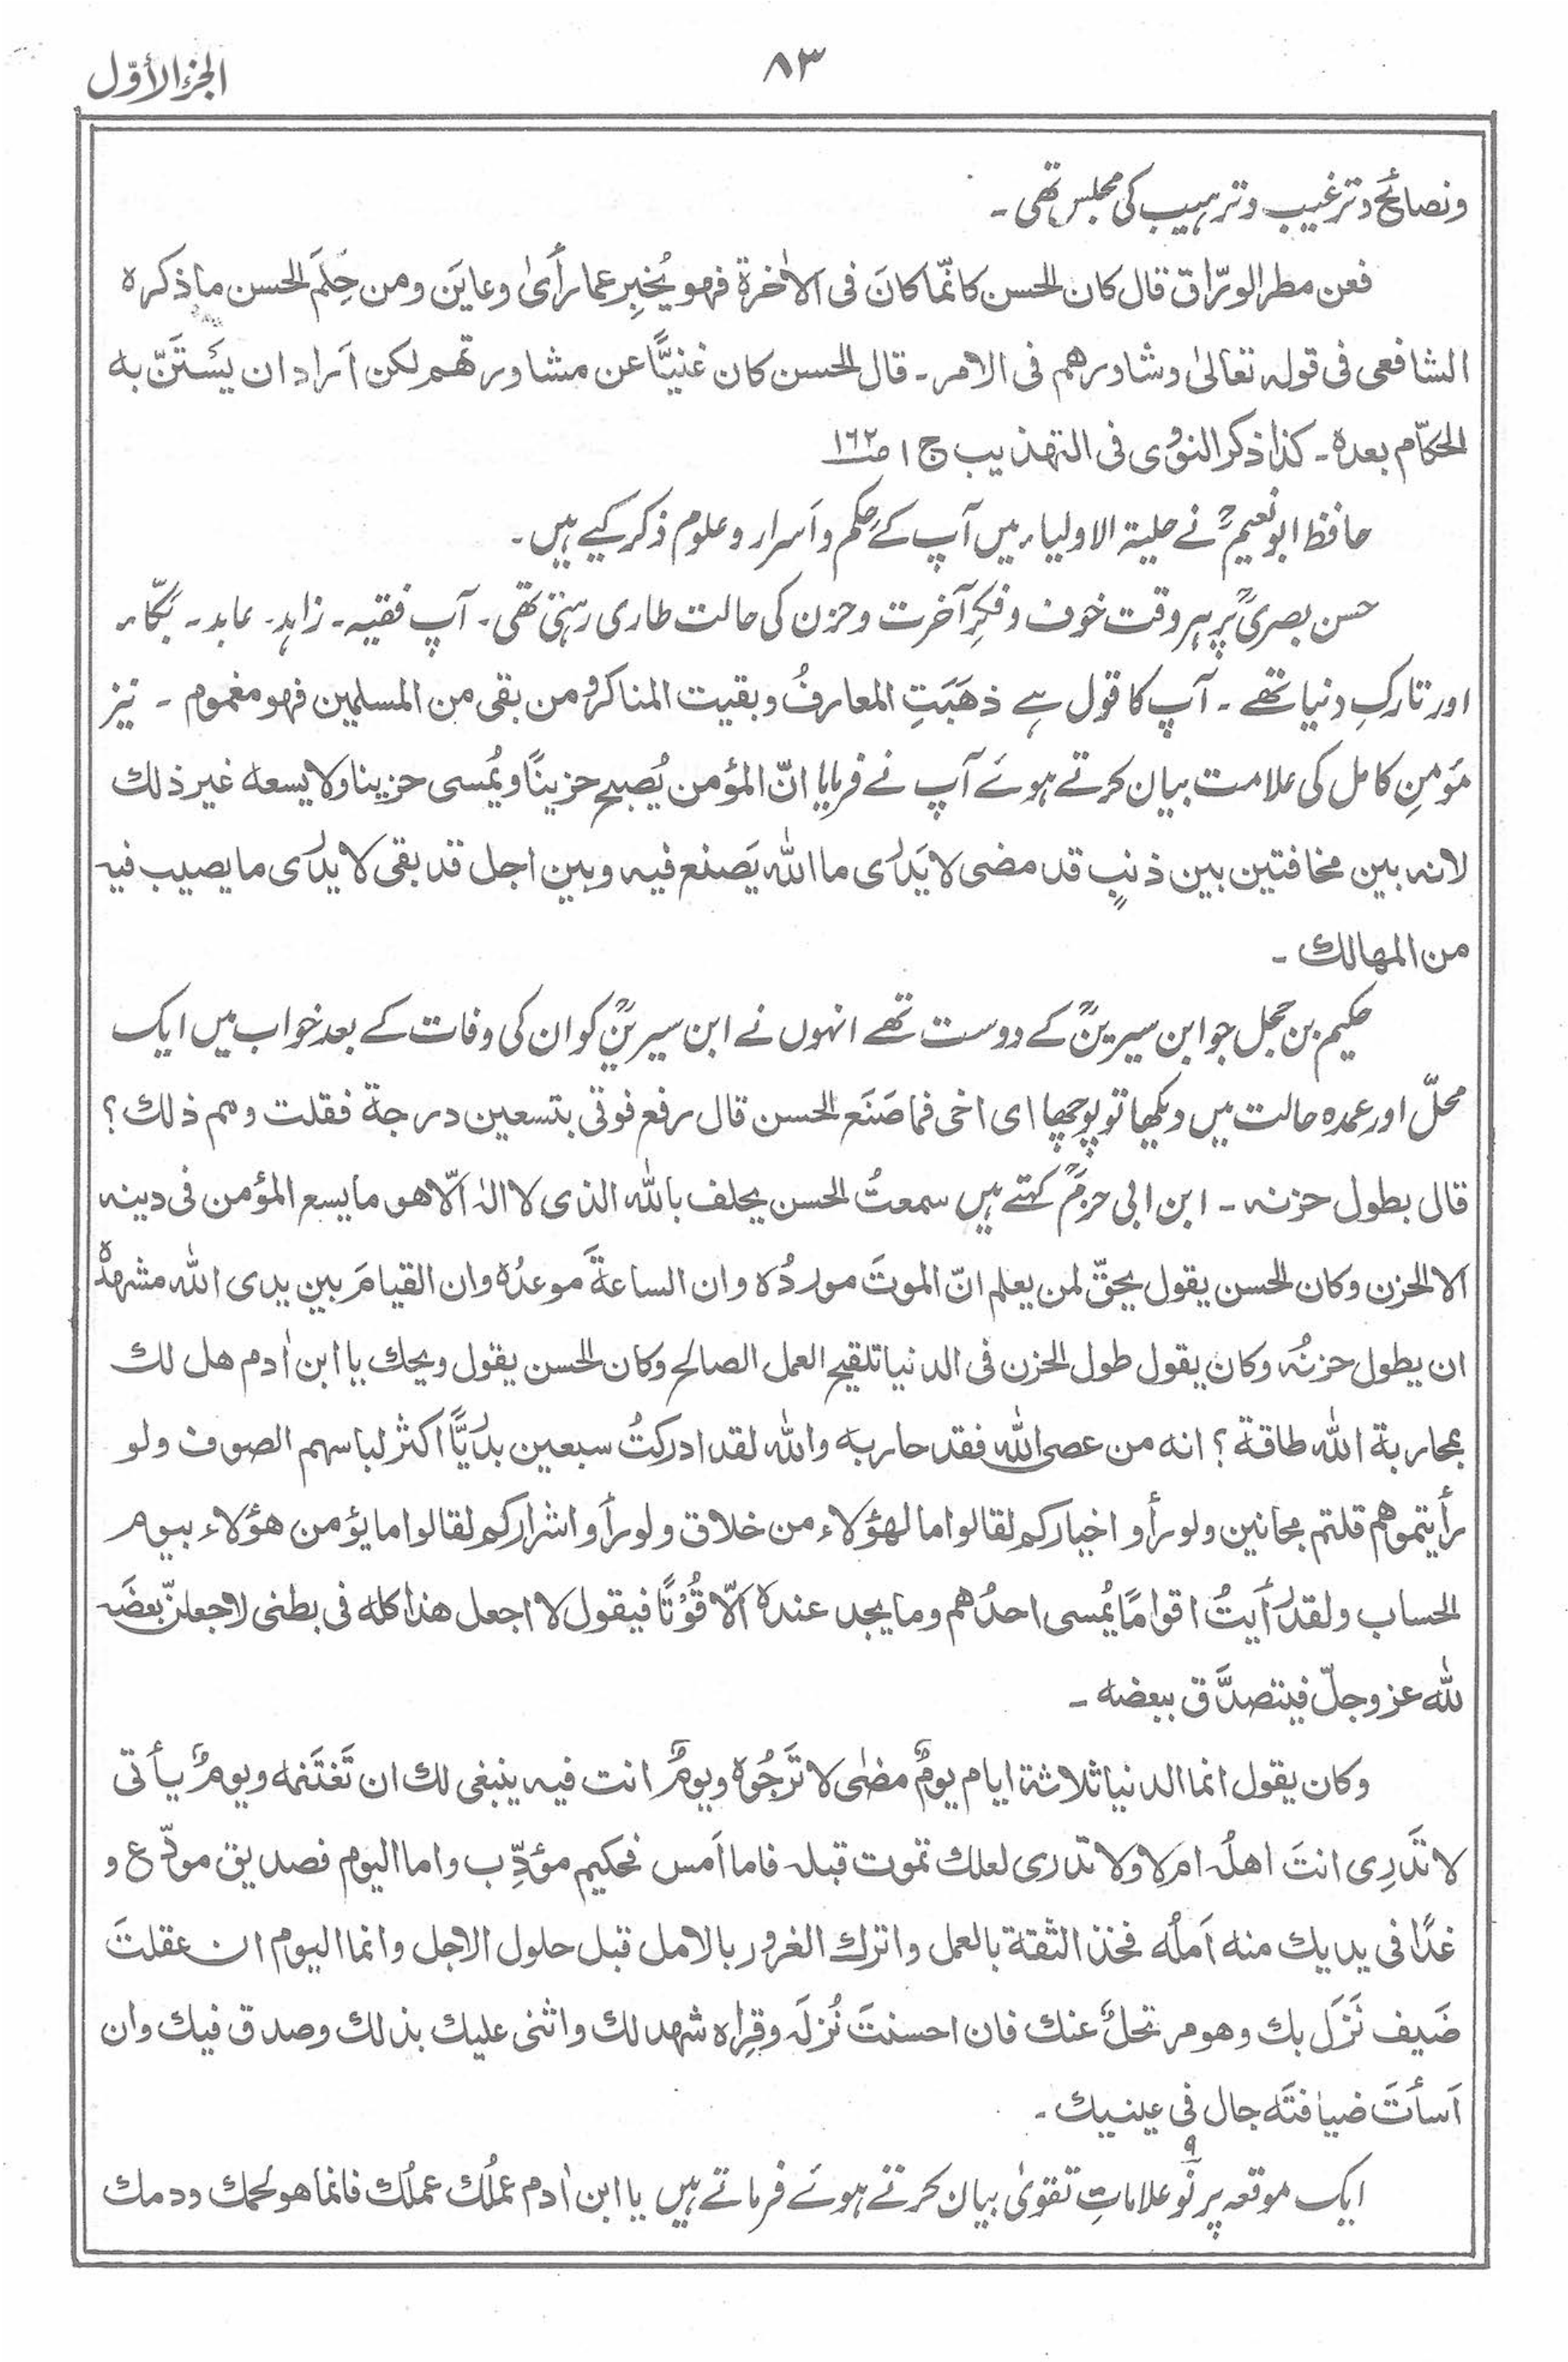 الجزء الأوّل
٨٣
ونصائح وترغیب وترہیب کی مجلس تھی۔
فعن مطر الورّاق قال کان الحسن کانّما کانَ فی الاٰخرة فهو یُخبِر عما رأیٰ وعایَن ومن حِلمَ الحسن ماذکره
الشافعی فی قوله تعالیٰ وشاورهم فی الامر۔ قال الحسن کان غنیًّا عن مشاورتهم لکن اَراد ان یَستَنّ به
الحکّام بعده۔ کذا ذکر النووی فی التهذیب ج ۱ ص ۱۶۲
حافظ ابو نعیمؒ نے حلیۃ الاولیاء میں آپ کے حِکم و اَسرار و علوم ذکر کیے ہیں۔
حسن بصریؒ پر ہر وقت خوف و فکرِ آخرت و حزن کی حالت طاری رہتی تھی۔ آپ فقیہ۔ زاہد۔ عابد۔ بَکّاء
اور تارکِ دنیا تھے۔ آپ کا قول ہے ذهَبَتِ المعارفُ وبقیت المناکرُ ومن بقی من المسلمین فهو مغموم۔ نیز
مؤمنِ کامل کی علامت بیان کرتے ہوئے آپ نے فرمایا انّ المؤمن یُصبح حزینًا ویُمسی حزینا ولا یسعه غیر ذلك
لانه بین مخافتین بین ذنبٍ قد مضی لا یَدرُی ما الله یَصنع فیه وبین اجل قد بقی لا یدرَی ما یصیب فیه
من المهالك۔
حکیم بن حجل جو ابن سیرینؒ کے دوست تھے انہوں نے ابن سیرینؒ کو ان کی وفات کے بعد خواب میں ایک
محلّ اور عمدہ حالت میں دیکھا تو پوچھا ای اخی فما صَنَع الحسن قال رفع فوقی بتسعین درجة فقلت ومم ذلك؟
قال بطول حزنه۔ ابن ابی حزمؒ کہتے ہیں سمعتُ الحسن یحلف بالله الذی لا اله الّا هو ما یسع المؤمن فی دینه
الا الحزن وکان الحسن یقول یحقّ لمن یعلم انّ الموتَ موردُه وان الساعةَ موعدُه وان القیامَ بین یدی الله مشهدُه
ان یطول حزنُه وکان یقول طول الحزن فی الدنیا تلقیح العمل الصالح وکان الحسن یقول ویحك یا ابن اٰدم هل لك
بمحاربة الله طاقة؟ انه من عصی الله فقد حاربه والله لقد ادرکتُ سبعین بدرَیًّا اکثر لباسهم الصوف ولو
رأیتموهم قلتم مجانین ولو رأو اخیارکم لقالوا ما لهؤلاء من خلاق ولو رأو اشرارکم لقالوا ما یؤمن هؤلاء بیوم
الحساب ولقد رُأیتُ اقوامًا یُمسی احدُهم وما یجد عنده الّا قُوْتًا فیقول لا اجعل هذا کله فی بطنی لاجعلنّ بعضَه
لله عز وجلّ فیتصدَّق ببعضه۔
وکان یقول انما الدنیا ثلاثة ایام یومٌ مضٰی لا تَرجُوه ویومٌ انت فیه ینبغی لك ان تَغتَنمه ویومٌ یأتی
لا تَدرِی انتَ اهلُه ام لا ولا تدری لعلك تموت قبله فاما اَمس فحکیم مؤدِّب واما الیوم فصدیق مودّع و
غدًا فی یدیك منه اَملُه فخذ الثقة بالعمل واترك الغرور بالامل قبل حلول الاجل وانما الیوم ان عقلتَ
ضَیف نَزَل بك وهو مرتحلٌ عنك فان احسنتَ نُزلَه وقِراه شهد لك واثنی علیك بذلك وصدق فیك وان
اَسأتَ ضیافتَه جال فی عینیك۔
ایک موقعہ پر نَو۹ علاماتِ تقویٰ بیان کرتے ہوئے فرماتے ہیں یا ابن اٰدم عملُك عملُك فانما هو لحمك ودمك